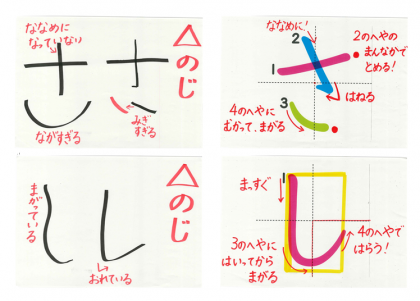 ななめに
なっていない
△のじ
ながすぎる
みぎ
すぎる
ななめに!
2
2のへやの
まんなかで
とめる!
1
はねる
3
4のへやに
むかって、まがる
△のじ
まがっている
おれている
1
まっすぐ
3のへやに
はいってから
まがる
4のへやで
はらう!